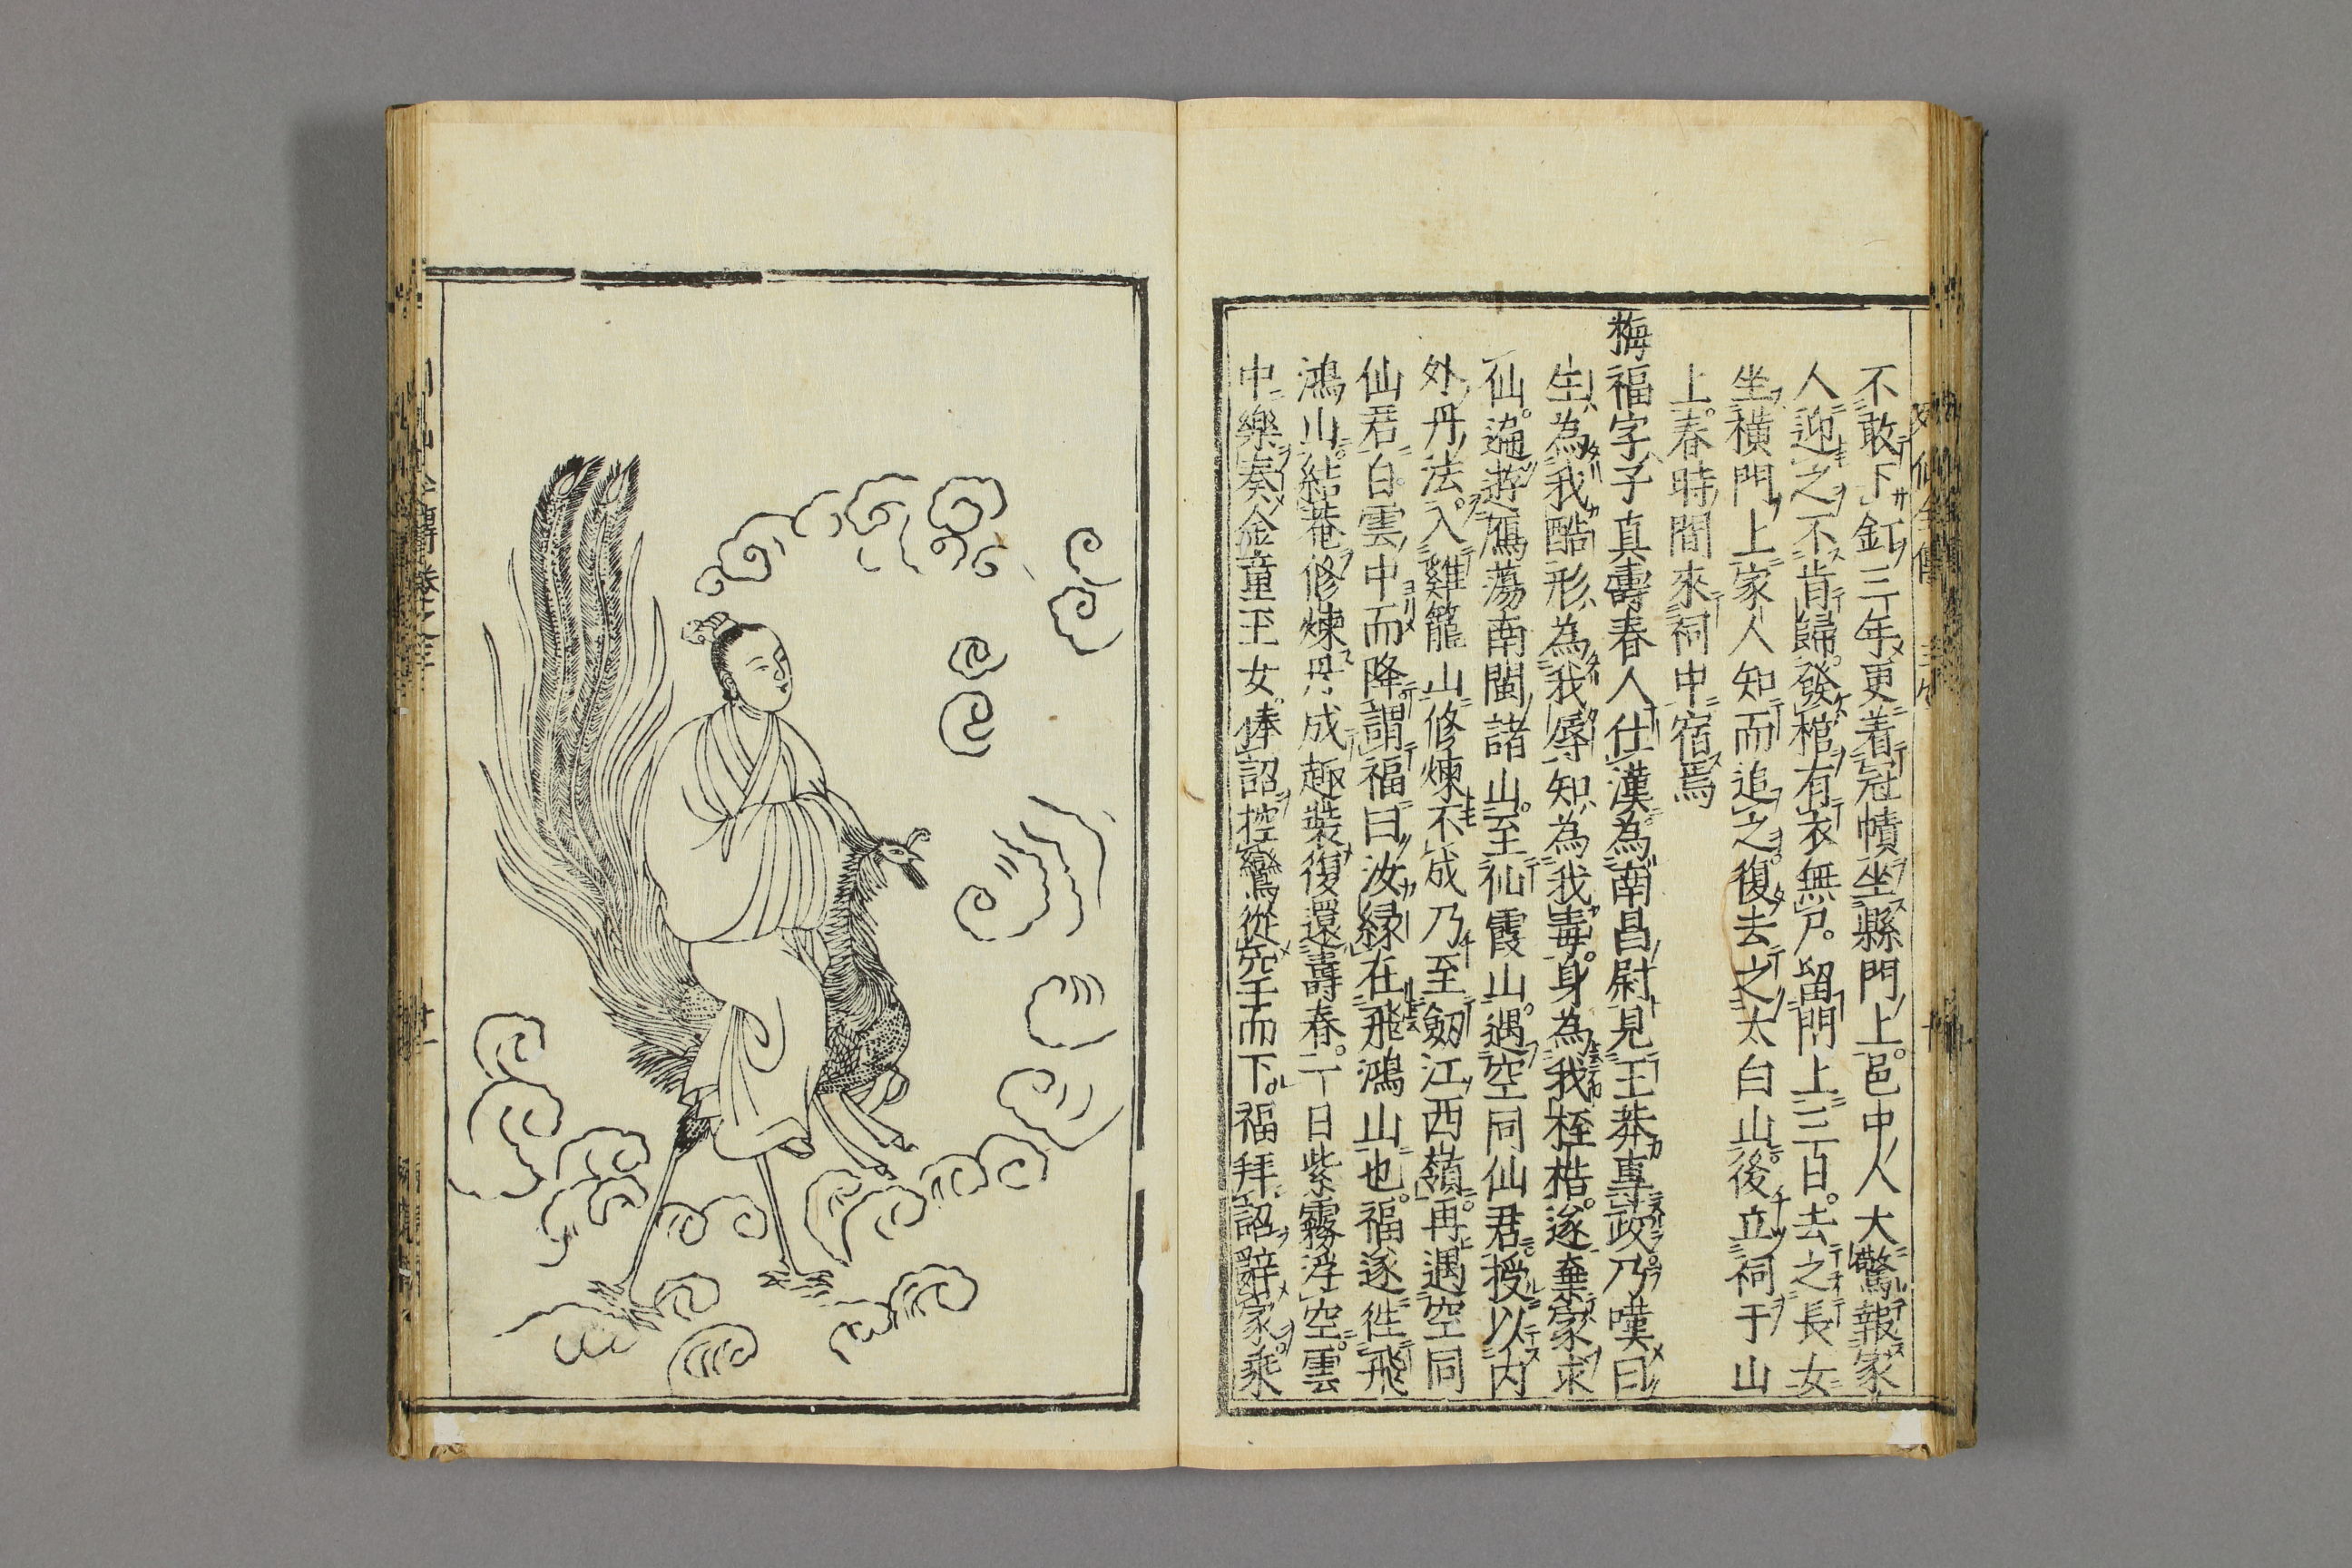 不敢下釭三年更着冠幘坐縣門上。邑中人大驚報家
人迎之不肯歸。發棺有衣無尸。留門上三百。去之長女
坐横門上家人知而追之。復去之太白山。後立祠于山
上。春時間來祠中宿焉
梅福字子真壽春人仕漢為南昌尉見王莽專政乃嘆曰
生為我酷形為我辱知為我毒。身為我桎梏。遂棄家求
仙。遍遊鴈蕩南閩諸山。至仙霞山。遇空同仙君授以内
外丹法。入雞籠山修煉不成乃至劔江西嶺。再遇空同
仙君白雲中而降。謂福曰汝縁在飛鴻山也。福遂徃飛
鴻山。結菴修煉丹成趣裝復還壽春。一日紫霧浮空。雲
中樂奏金童玉女。捧詔控鸞從空而下。福拜詔辭家。乘